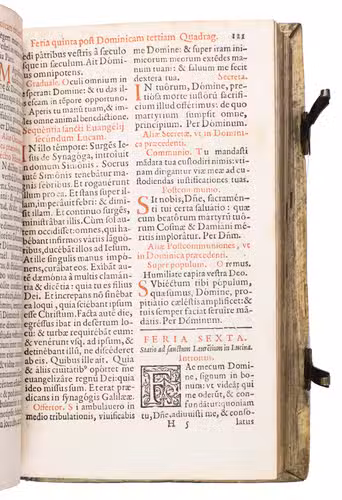 Feria quinta post Dominicam tertiam Quadrag. 121
di pàtribus vestris à sæculo
in sæculum. Ait Dómi
us omnipotens.
Graduale. Oculi omnium in
sperant Dómine: & tu das il-
escam in tẽpore opportuno.
Aperis tu manũ tuam, & im
omne animal benedictione.
Sequentia sancti Euangelij
secundum Lucam.
IN illo tẽpore: Surgẽs Ie-
sus de Synagóga, introiuit
in domum Simónis. Socrus
autẽ Simónis tenebátur ma-
gnis fébribus. Et rogauérunt
illum pro ea. Et stans super il-
lam imperáuit febri: & dimí-
sit illam. Et continuo surgẽs,
ministrábat illis. Cùm sol au-
tem occidísset: omnes, qui ha
bébant infirmos várijs lãguó-
ribus, ducébãt illos ad Iesum.
At ille síngulis manus impó-
nens, curábat eos. Exíbãt au-
tẽ dæmónia à multis clamán-
tia & dicẽtia: quia tu es filius
Dei. Et íncrepans nõ sinébat
ea loqui, quia sciébant ipsum
esse Christum. Facta autẽ die,
egréssus ibat in desértum lo-
cũ: & turbæ requirébãt eum:
& venérunt vsq; ad ipsum, &
detinébãt illũ, ne discéderet
ab eis. Quibus ille ait. Quia
& álijs ciuitátib⁹ opórtet me
euangelizáre regnũ Dei: quia
ídeo missus sum. Et erat præ-
dicans in synagógis Galilææ.
Offertor. Si ambuláuero in
médio tribulatiónis, viuificábis
me Dómine: & super iram ini-
micórum meórum extẽdes ma-
num tuam: & saluum me fecit
déxtera tua. Secreta.
IN tuórum, Dómine, pre-
tiósa morte iustórũ sacrifí-
cium illud offérimus: de quo
martýrium sumpsit omne,
princípium. Per Dóminum.
Aliæ Secretæ, vt in Dominica
præcedenti.
Communio. Tu mandásti
mãdáta tua custodíri nimis: vti-
nam dirigãtur viæ meæ ad cu-
stodiéndas iustificatiónes tuas.
Postcommunio.
SIt nobis, Dñe, sacramén-
ti tui certa saluátio: quæ
cum beatórum mártyrũ tuó-
rum Cosmæ & Damiáni me-
ritis implorátur. Per Dñm.
Aliæ Postcommuniones, vt
in Dominica præcedenti.
Super populum. Oremus.
Humiliáte cápita vestra Deo.
SVbiéctum tibi pópulum,
quǽsumus, Dómine, propi-
tiátio cæléstis amplíficet: &
tuis semper fáciat seruíre mãdá-
tis. Per Dóminum.
FERIA SEXTA.
Statio ad sanctum Laurẽtium in Lucina.
Introitus.
FAc mecum Dómi
ne, signum in bo-
num: vt vídeãt qui
me odérũt, & con-
fundántur: quóniam
tu, Dñe, adiuuísti me, & conso-
H 5 latus